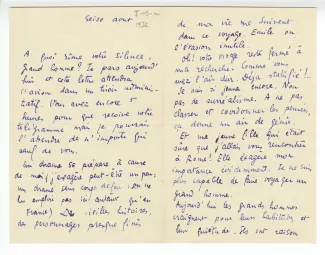 Seize aout
1932
A quoi rime votre silence,
grand homme? Je pars aujourd'
hui et cette lettre attendra
l'avion dans un tiroir adminis-
tratif. Vous avez encore 5
heures pour que recevoir votre
télégramme mais je pourrais
m'attendre de n'importe qui
sauf de vous.
Un drame se prépare à cause
de moi (j'exagère peut-être un peu:
un drame sans coups de feu, on ne
les emploie pas ici autant qu'en
France) De vieilles histoires,
des personnages presque finis
de ma vie me suivent
dans ce voyage. Exile ou
l'évasion inutile.
Oh! votre visage reste fermé à
ma recherche. Comme vous
avez l'air sur déjà statufié!!
Je suis si jeune encore. Non
pas de surréalisme. A ne pas
classer et coordonner les pensées,
on donne un air de génie.
Et une jeune fille qui était
sûre que j'allais vous rencontrer
à Rome! Elle exagère mon
importance évidemment. Je ne suis
plus capable de faire voyager un
grand homme.
Aujourd'hui les grands hommes
craignent pour leurs habitudes et
leur quiétude. Ils ont raison